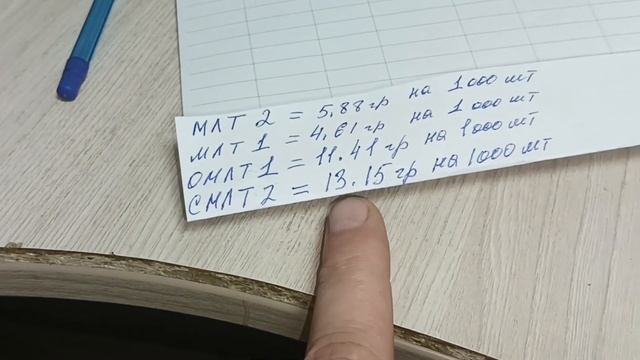 МЛТ 2 = 5,88гр на 1000 шт
МЛТ 1 = 4,61гр на 1000 шт
ОМЛТ 1 = 11.41гр на 1000 шт
СМЛТ 2 = 13.15гр на 1000 шт